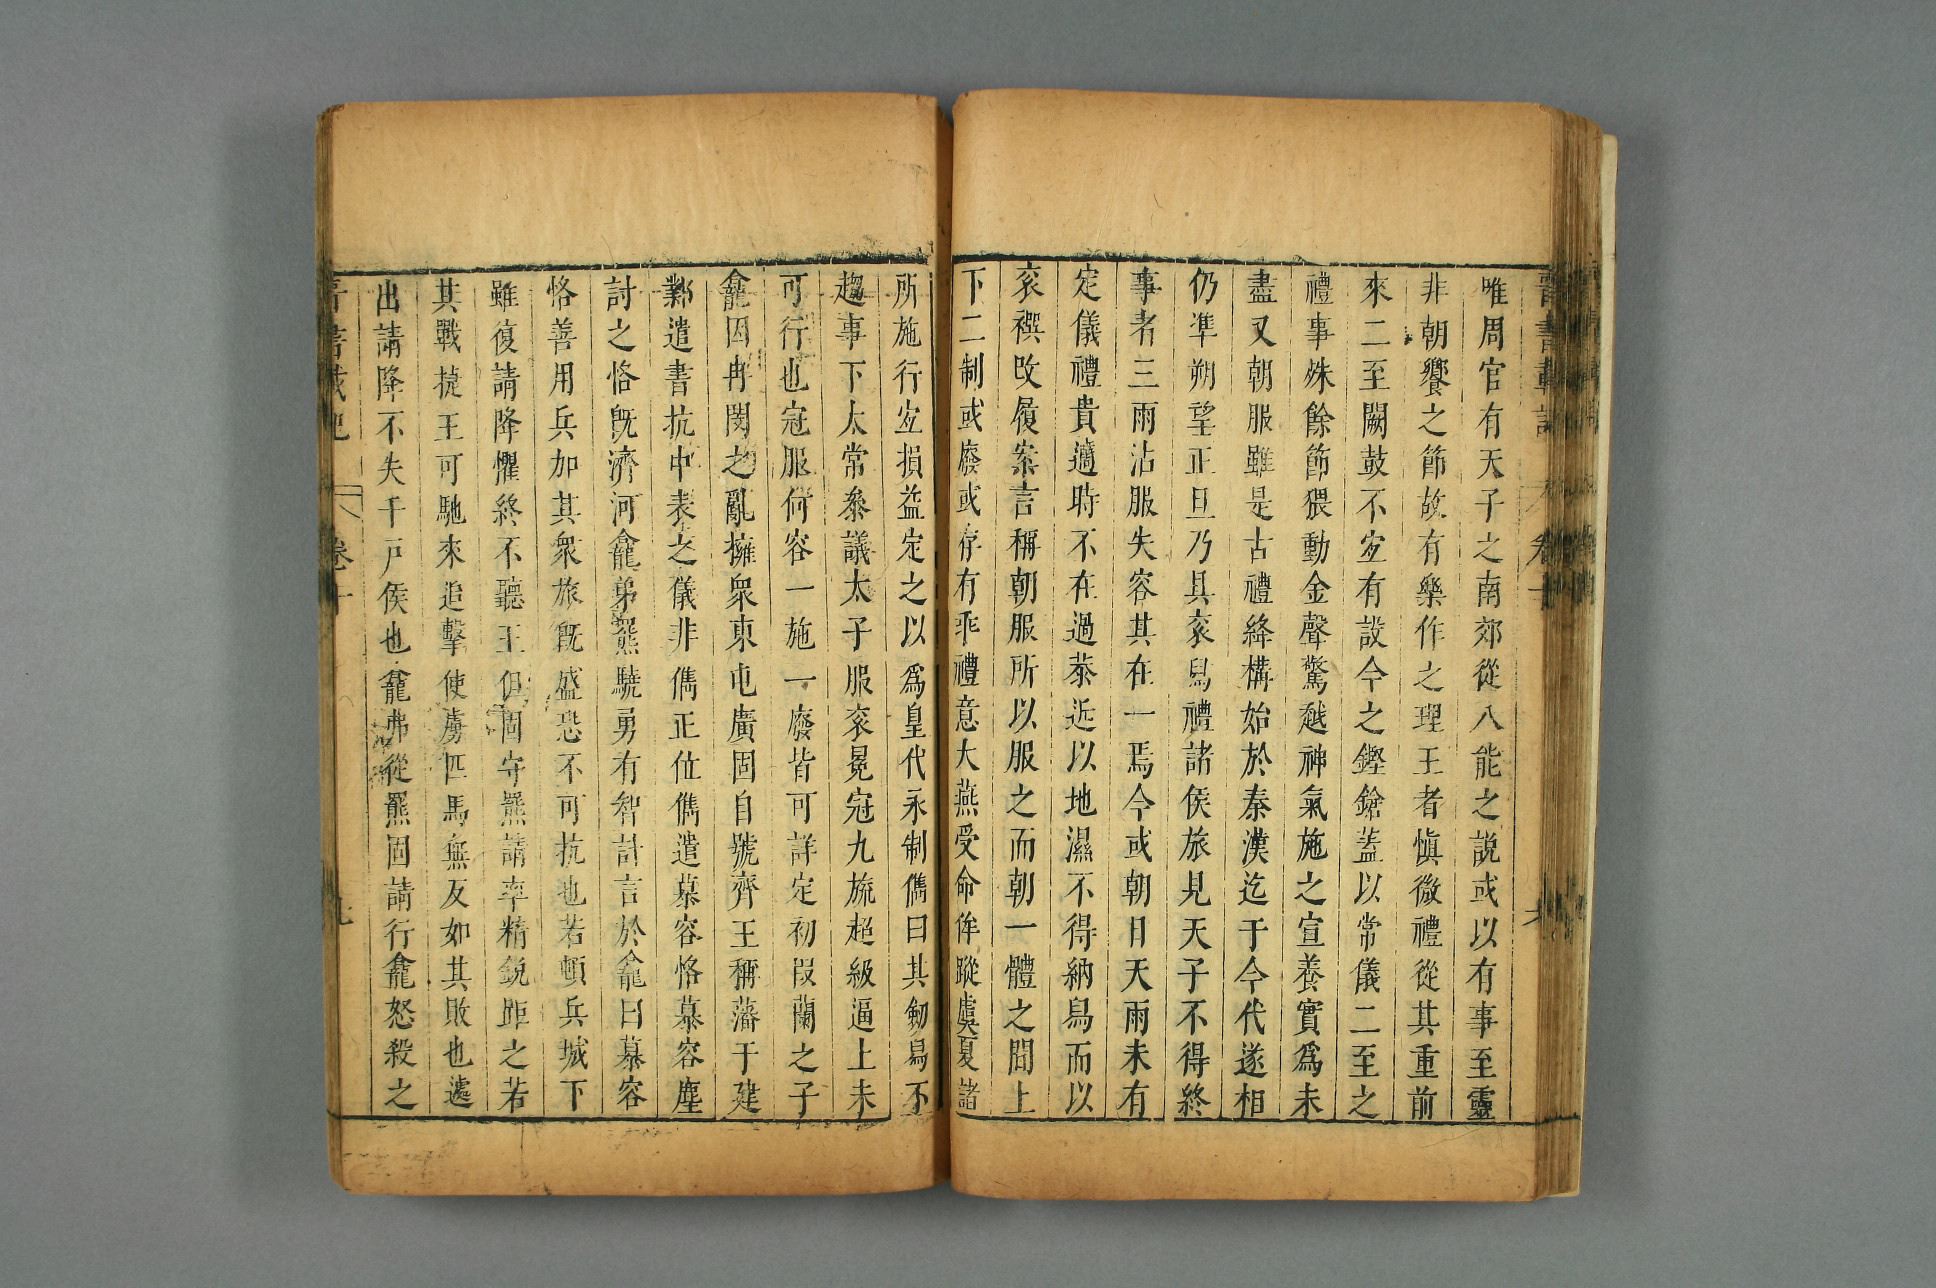 晉書載記
卷十
唯周官有天子之南郊從八能之說或以有事至靈
非朝饗之節故有樂作之理王者愼微禮從其重前
來二至闕鼓不宜有設今之鏗鎗蓋以常儀二至之
禮事殊餘節猥動金聲驚越神氣施之宣養實爲未
盡又朝服雖是古禮絳構始於秦漢迄于今代遂相
仍準朔望正旦乃具衮舄禮諸侯旅見天子不得終
事者三雨沾服失容其在一焉今或朝日天雨未有
定儀禮貴適時不在過恭近以地濕不得納舄而以
衮襈改履案言稱朝服所以服之而朝一體之間上
下二制或廢或存有乖禮意大燕受命侔蹤虞夏諸
所施行宜損益定之以爲皇代永制儁曰其劒舄不
趨事下太常參議太子服衮冕冠九旒超級逼上未
可行也冠服何容一施一廢皆可詳定初段蘭之子
龕因冉閔之亂擁衆東屯廣固自號齊王稱藩于建
鄴遣書抗中表之儀非儁正位儁遣慕容恪慕容塵
討之恪旣濟河龕弟羆驍勇有智計言於龕曰慕容
恪善用兵加其衆旅旣盛恐不可抗也若頓兵城下
雖復請降懼終不聽王但固守羆請率精銳距之若
其戰捷王可馳來追擊使虜匹馬無反如其敗也遽
出請降不失千戶侯也龕弗從羆固請行龕怒殺之
晉書載記
卷十
九